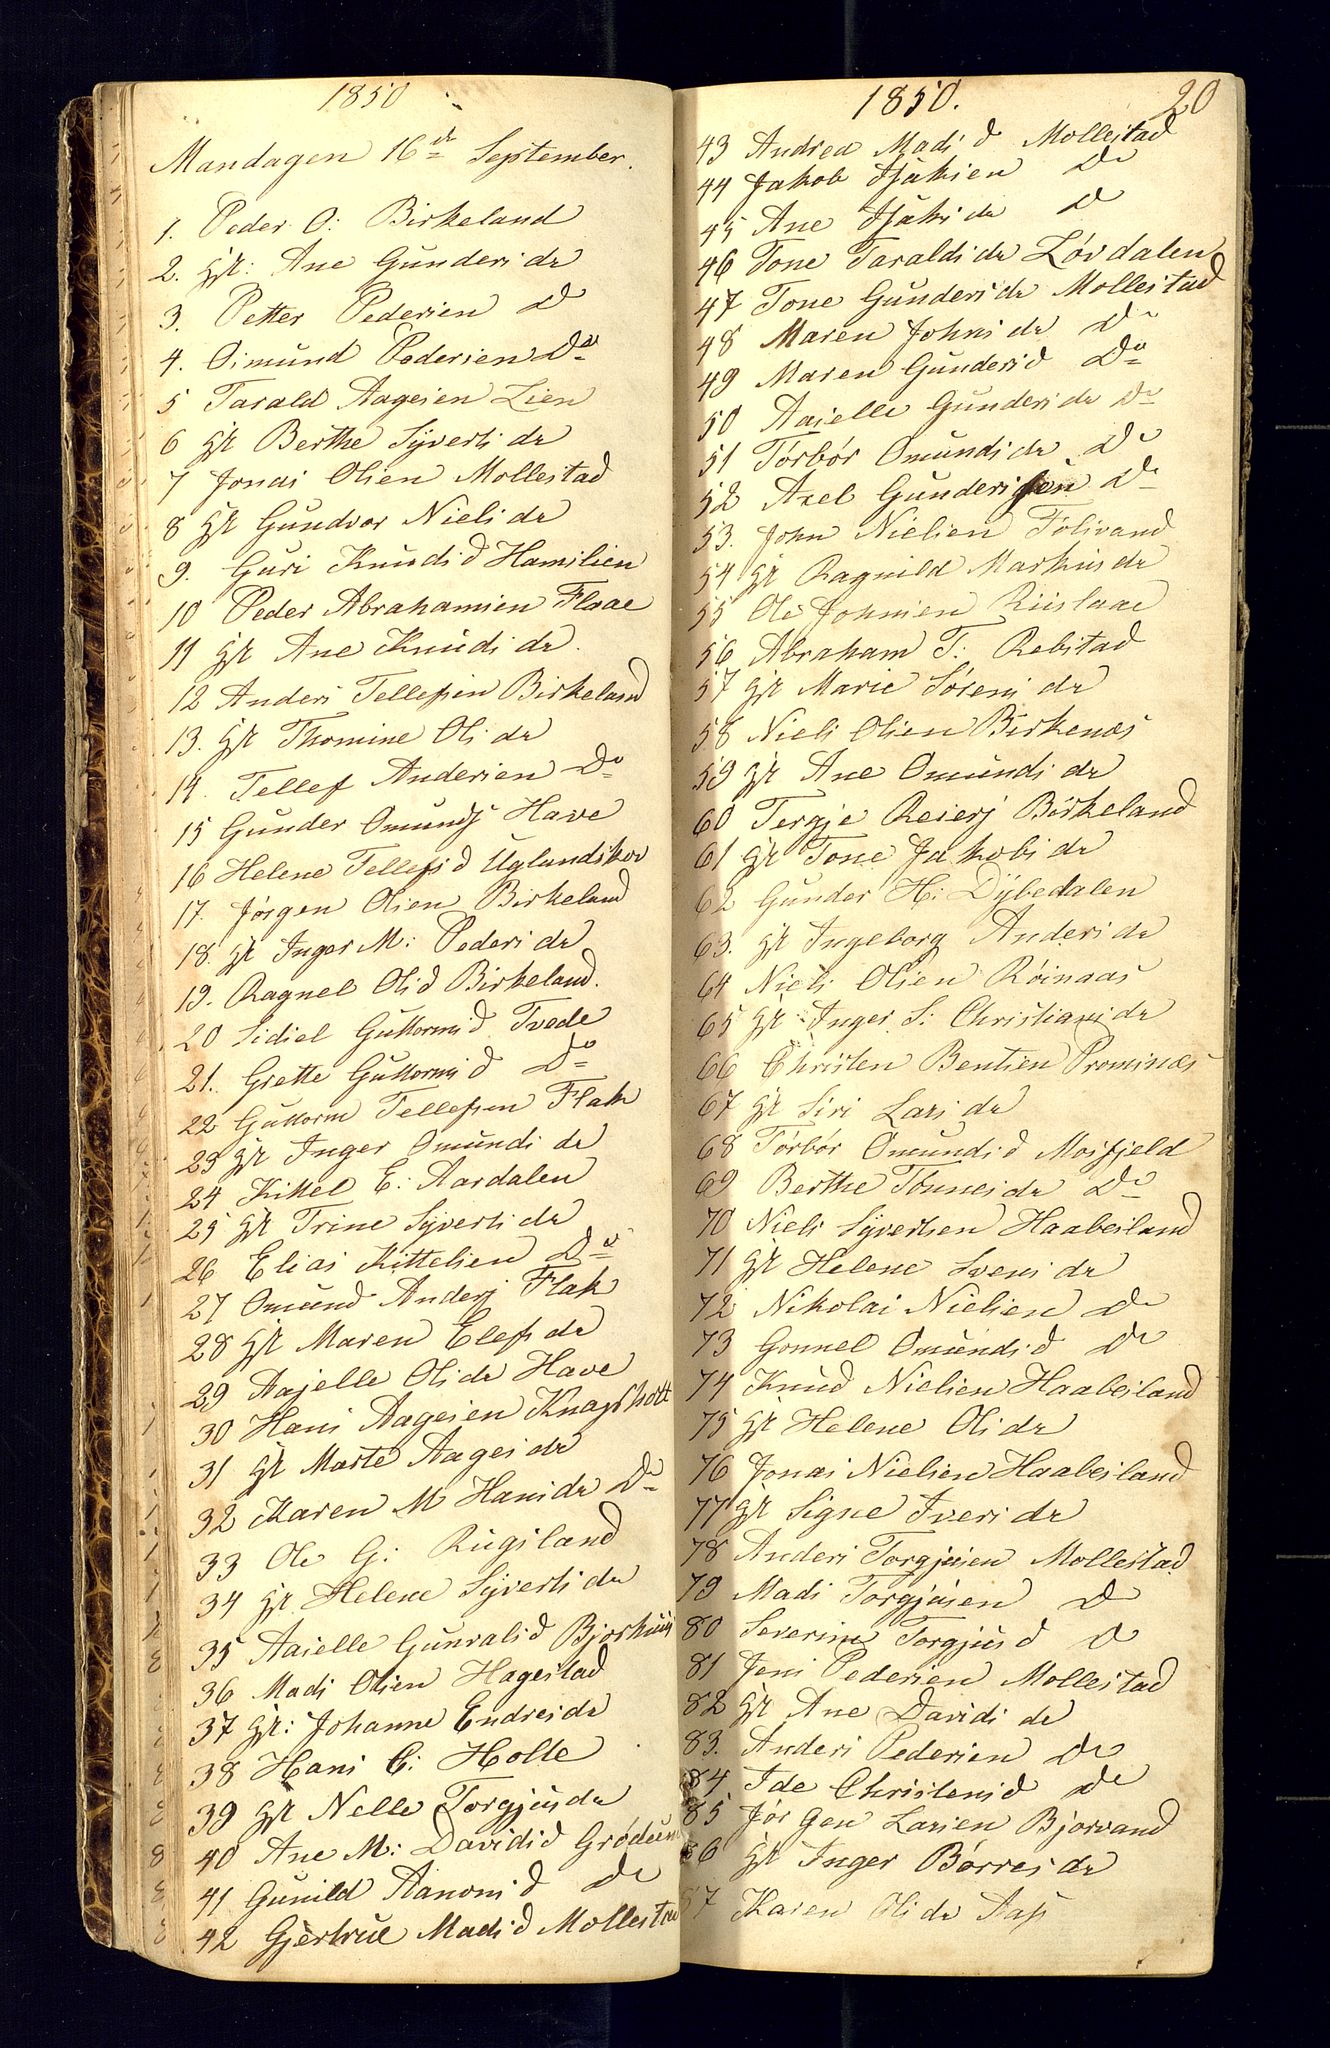 1850
Mandagen 16de September.
1. Peder O: Birkeland
2. Hst: Ane Gundersdr
3. Petter Pedersen Do
4. Osmund Pedersen Do
5 Tarald Aagesen Lien
6 Hst Berthe Syvertsdr
7 Jonas Olsen Mollestad
8 Hst Gundvor Nielsdr
9. Guri Knudsd Hamslien
10 Peder Abrahamsen Flaae
11 Hst Ane Knudsdr.
12 Anders Tellefsen Birkeland
13. Hst Thomine Olsdr
14. Tellef Andersen Do
15 Gunder Omunds Have
16 Helene Tellefsd Uglandskov
17. Jørgen Olsen Birkeland
18. Hst Inger M: Pedersdr
19. Ragnel Olsd Birkeland.
20 Sidsel Guttormsd Tvede
21. Grette Guttormsd Do
22 Guttorm Tellefsen Flak
23 Hst Inger Omundsdr
24 Kittel E: Aardalen
25 Hst Trine Syvertsdr
26 Elias Kittelsen Do
27 Omund Anders Flak
28 Hst Maren Elefsdr
29 Aasjelle Olsdr Have
30 Hans Aagesen Knapskott
31 Hst Marte Aagesdr
32 Karen M Hansdr Do
33 Ole G: Rugsland
34 Hst Helene Syvertsdr
35 Aaselle Gunvalsd Bjorhuus
36 Mads Olsen Hagestad
37 Hst: Johanne Endresdr
38 Hans C: Holte
39 Hst Nelle Torgjusdr
40 Ane M: Davidsd Grødum
41 Gunild Aanonsd Do
42 Gjertrue Madsd Mollestad
1850. 20
43 Andrea Madsd Mollestad
44 Jakob Isaksen Do
45 Ane Isaksdr Do
46 Tone Taraldsdr Løvdalen
47 Tone Gundersdr Mollestad
48 Maren Johnsdr Do
49 Maren Gundersd Do
50 Aaselle Gundersdr Do
51 Torbor Omundsdr Do
52 Axel Gundersen Do
53. John Nielsen Tolivand
54 Hst Ragnild Markusdr
55 Ole Johnsen Riislaae
56 Abraham T: Rebstad
57 Hst Marie Sørensdr
58 Niels Olsen Birkenæs
59 Hst Ane Omundsdr
60 Tergje Reiers Birkeland
61 Hst Tone Jakobsdr
62 Gunder H: Dybedalen
63. Hst Ingeborg Andersdr
64 Niels Olsen Røinaas
65 Hst Inger S: Christiansdr
66 Christen Bentsen Prominæs
67 Hst Siri Larsdr
68 Torbor Omundsd Mosfjeld
69 Berthe Tønnesdr Do
70 Niels Syvertsen Haabesland
71 Hst Helene Svensdr
72 Nikolai Nielsen Do
73 Gonnel Omundsd Do
74 Knud Nielsen Haabesland
75 Hst Helene Olsdr
76 Jonas Nielsen Haabesland
77 Hst Signe Iversdr
78 Anders Torgjusen Mollestad
79 Mads Torgjusen Do
80 Severine Torgjusd Do
81 Jens Pedersen Mollestad
82 Hst Ane Davidsdr
83. Anders Pedersen Do
84 Ide Christensd Do
85 Jørgen Larsen Bjorvand
86 Hst Inger Børresdr
87 Karen Olsdr Aas